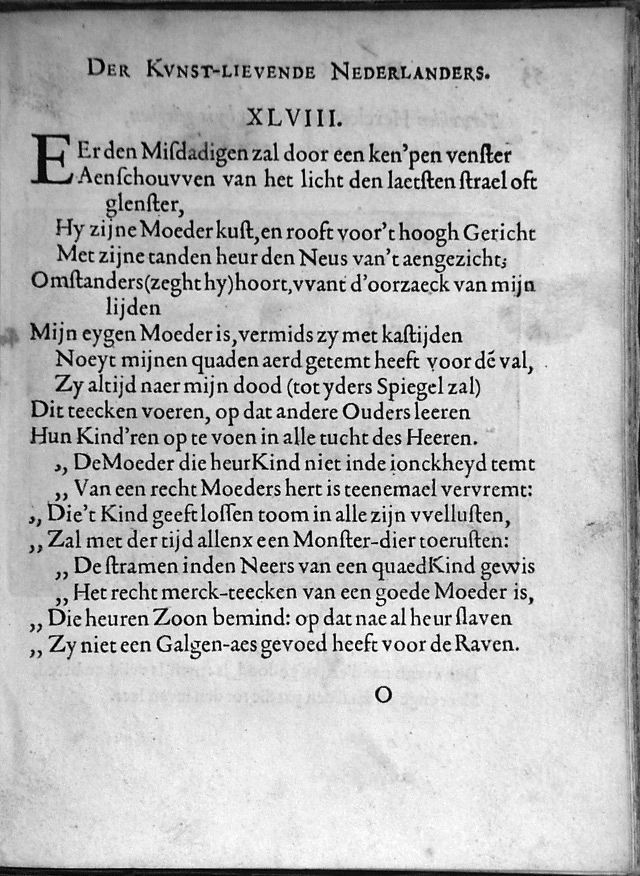 DER KVNST-LIEVENDE NEDERLANDERS.
XLVIII.
EErden Miſdadigen zal door een ken'pen venſter
Aenſchouvven van het licht den laetſten ſtrael oft
glenſter,
Hy zijne Moeder kuſt, en rooft voor't hoogh Gericht
Met zijne tanden heur den Neus van't aengezicht;
Omſtanders (zeght hy) hoort, vvant d'oorzaeck van mijn
lijden
Mijn eygen Moeder is, vermids zy met kaſtijden
Noeyt mijnen quaden aerd getemt heeft voor dē val,
Zy altijd naer mijn dood (tot yders Spiegel zal)
Dit teecken voeren, op dat andere Ouders leeren
Hun Kind'ren op te voen in alle tucht des Heeren.
,, De Moeder die heur Kind niet inde jonckheyd temt
,, Van een recht Moeders hert is teenemael vervremt:
,, Die't Kind geeft loſſen toom in alle zijn vvelluſten,
,, Zal met der tijd allenx een Monſter-dier toeruſten:
,, De ſtramen inden Neers van een quaed Kind gewis
,, Het recht merck-teecken van een goede Moeder is,
,, Die heuren Zoon bemind: op dat nae al heur ſlaven
,, Zy niet een Galgen-aes gevoed heeft voor de Raven.
O